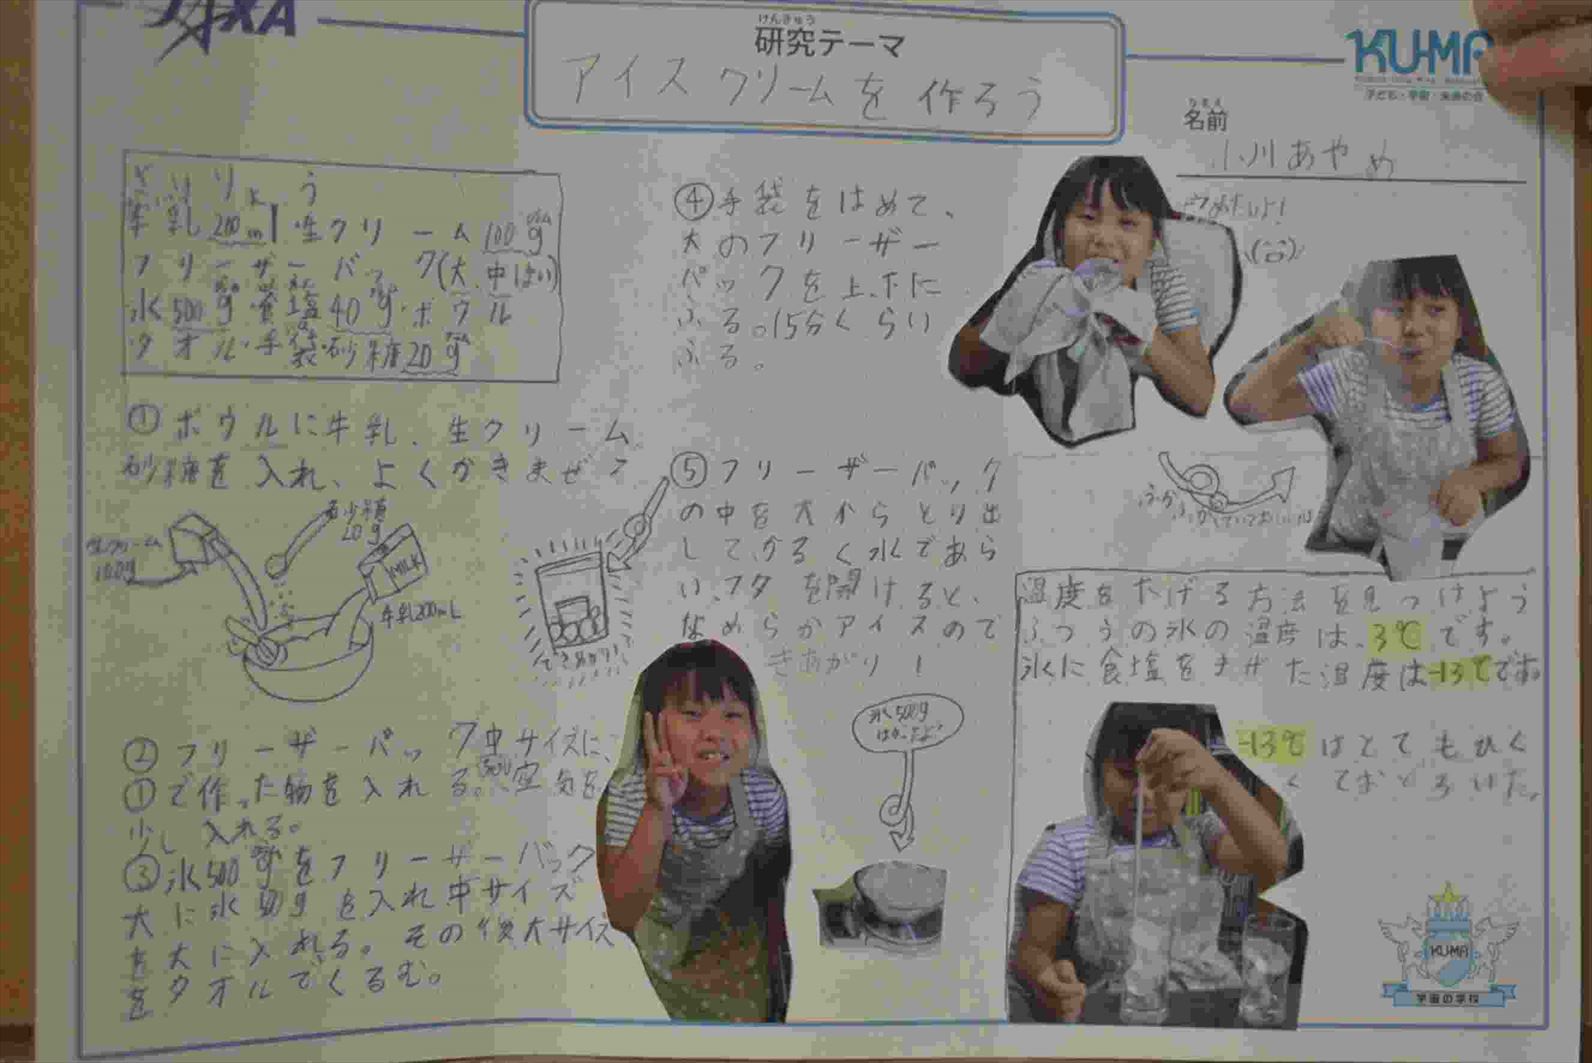 JAXA
けんきゅう
研究テーマ
アイスクリームを作ろう
KU-MA
子ども・宇宙・未来の会
なまえ
名前
小川あやめ
ざいりょう
牛乳200ml 生クリーム100g
フリーザーバック(大.中1まい)
氷500g 食塩40g・ボウル
タオル・手袋・砂糖20g
①ボウルに牛乳、生クリーム
砂糖を入れ、よくかきまぜる
生クリーム
100g
砂糖
20g
MILK
牛乳200mL
②フリーザーバック中サイズに、
①で作った物を入れる。空気を
少し入れる。
③氷500gをフリーザーバック
大に氷 を入れ中サイズ
を大に入れる。その後大サイズ
をタオルでくるむ。
④手袋をはめて、
大のフリーザー
パックを上下に
ふる。15分くらい
ふる。
⑤フリーザーバック
の中を大からとり出
して、かるく水であら
い、フタを開けると、
なめらかアイスので
きあがり!
できあがり!
氷500g
はかったよ?
つめたいよ!
温度を下げる方法を見つけよう
ふつうの氷の温度は、3℃です。
氷に食塩をまぜた温度は-13℃です。
-13℃はとてもひく
くておどろいた。
KUMA
宇宙の学校